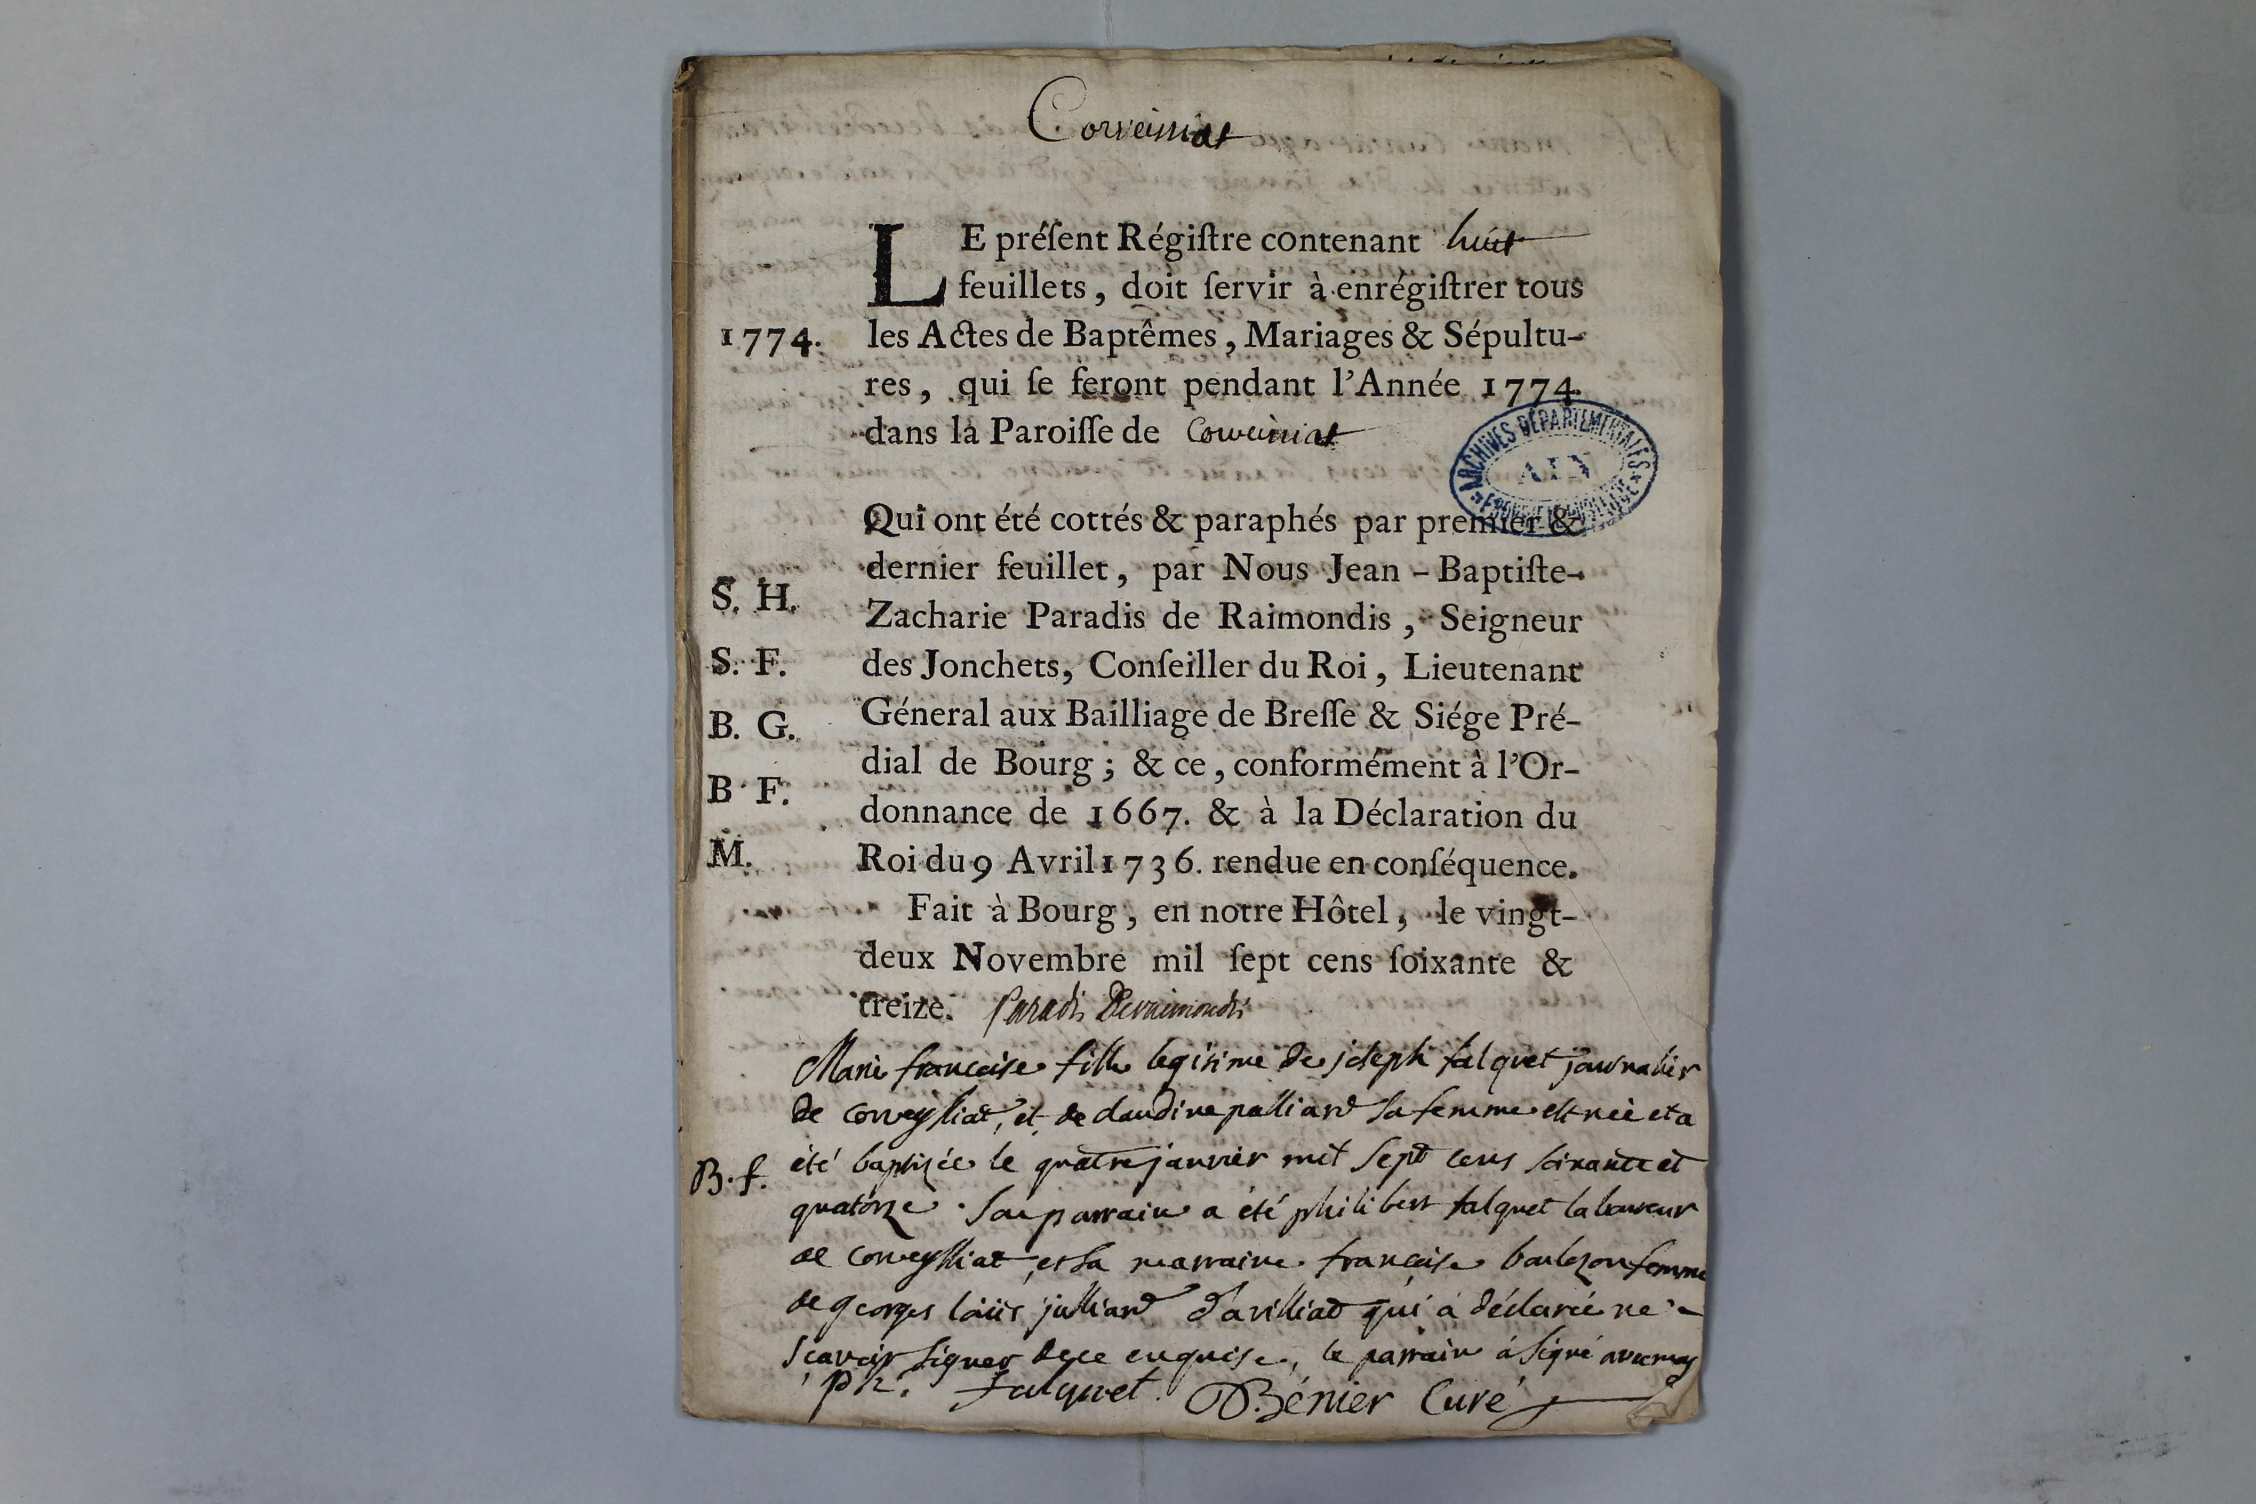 Corveissiat
LE préſent Régiſtre contenant huit
feuillets, doit ſervir à enrégiſtrer tous
1774. les Actes de Baptêmes, Mariages & Sépultu-
res, qui ſe feront pendant l'Année 1774.
dans la Paroiſſe de Corveissiat
ARCHIVES DÉPARTEMENTALES
AIN
Qui ont été cottés & paraphés par premier &
dernier feuillet, par Nous Jean-Baptiſte-
S. H.
Zacharie Paradis de Raimondis, Seigneur
S. F. des Jonchets, Conſeiller du Roi, Lieutenant
B. G. Géneral aux Bailliage de Breſſe & Siége Pré-
dial de Bourg; & ce, conformément à l'Or-
B F. donnance de 1667. & à la Déclaration du
M. Roi du 9 Avril 1736. rendue en conſéquence.
Fait à Bourg, en notre Hôtel, le vingt-
deux Novembre mil ſept cens ſoixante &
treize. Paradis Deraimondis
Marie francoise fille legitime de joseph falquet journalier
de corveyssiat, et de claudine palliard sa femme est née et a
B. f. été baptizée le quatre janvier mil sept cens soixante et
quatorze. son parrain a été philibert falquet laboureur
de corveyssiat, et sa marraine françoise femme
de georges loüis julliard d'arilliat qui a déclaré ne
scavoir signer de ce enquise, le parrain a signé avec moy
ph. falquet. Bénier Curé